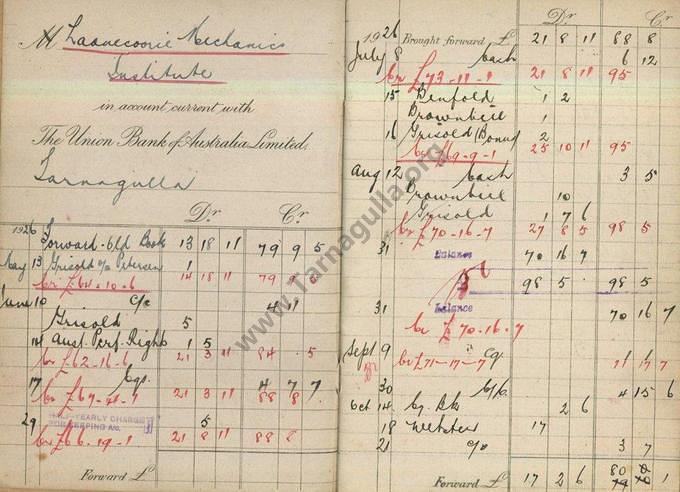 M Laanecoorie Mechanics
Institute
in account current with
The Union Bank of Australia Limited,
Tarnagulla
Dr. Cr.
1926 Forward Old Book 13 18 11 79 9 5
May 13 Grisold c/o Petersen 1
Cr £64-10-6 14 18 11 79 9 5
June 10 C/o
Grisold 5
14 Aust. Perf. Right 1 5
Cr £62-16-6 21 3 11 84 5
17 4 7 7
21 3 11 88 8
29 HALF-YEARLY CHARGE
FOR KEEPING A/c. 5
Cr £66-19-1 21 8 11 88 8
Forward £
Dr. Cr.
1926 Brought forward £ 21 8 11 88 8
July 8 Cash 6 12
Cr £73-11-1 21 8 11 95
15 Benfold 1 2
Brownbill 1
16 Grisold (Bonus) 2
Cr £69-9-1 25 10 11 95
Aug 12 Cash 3 5
Brownbill 10
Grisold 1 7 6
Cr £70-16-7 27 8 5 98 5
31 Balance 70 16 7
98 5 98 5
31 Balance 70 16 7
Cr £70-16-7
Sept 9 Cr £71-17-7 71 17 7
30 4 15 6
Oct 14 Cq. Bk 2 6
18 Webster 17
21 C/o 3 7
Forward £ 17 2 6 80 0 1
www.Tarnagulla.org